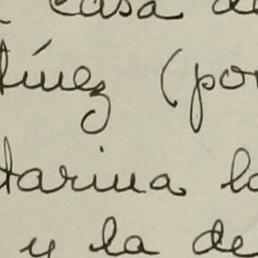 casa de
tínez (por
tarina la
y la de